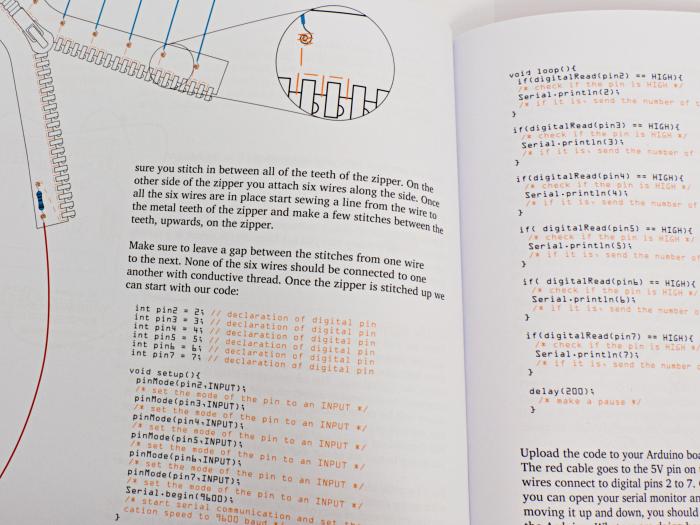 sure you stitch in between all of the teeth of the zipper. On the
other side of the zipper you attach six wires along the side. Once
all the six wires are in place start sewing a line from the wire to
the metal teeth of the zipper and make a few stitches between the
teeth, upwards, on the zipper.
Make sure to leave a gap between the stitches from one wire
to the next. None of the six wires should be connected to one
another with conductive thread. Once the zipper is stitched up we
can start with our code:
int pin2 = 2; // declaration of digital pin
int pin3 = 3; // declaration of digital pin
int pin4 = 4; // declaration of digital pin
int pin5 = 5; // declaration of digital pin
int pin6 = 6; // declaration of digital pin
int pin7 = 7; // declaration of digital pin
void setup(){
pinMode(pin2,INPUT);
/* set the mode of the pin to an INPUT */
pinMode(pin3,INPUT);
/* set the mode of the pin to an INPUT */
pinMode(pin4,INPUT);
/* set the mode of the pin to an INPUT */
pinMode(pin5,INPUT);
/* set the mode of the pin to an INPUT */
pinMode(pin6,INPUT);
/* set the mode of the pin to an INPUT */
pinMode(pin7,INPUT);
/* set the mode of the pin to an INPUT */
Serial.begin(9600);
/* start serial communication and set the
cation speed to 9600 baud */
}
void loop(){
if(digitalRead(pin2) == HIGH){
/* check if the pin is HIGH */
Serial.println(2);
/* if it is, send the number of
}
if(digitalRead(pin3) == HIGH){
/* check if the pin is HIGH */
Serial.println(3);
/* if it is, send the number of
}
if(digitalRead(pin4) == HIGH){
/* check if the pin is HIGH */
Serial.println(4);
/* if it is, send the number of
}
if( digitalRead(pin5) == HIGH){
/* check if the pin is HIGH */
Serial.println(5);
/* if it is, send the number of
}
if( digitalRead(pin6) == HIGH){
/* check if the pin is HIGH */
Serial.println(6);
/* if it is, send the number o
}
if(digitalRead(pin7) == HIGH){
/* check if the pin is HIGH */
Serial.println(7);
/* if it is, send the number o
}
delay(200);
/* make a pause */
}
Upload the code to your Arduino boa
The red cable goes to the 5V pin on
wires connect to digital pins 2 to 7.
you can open your serial monitor an
moving it up and down, you should